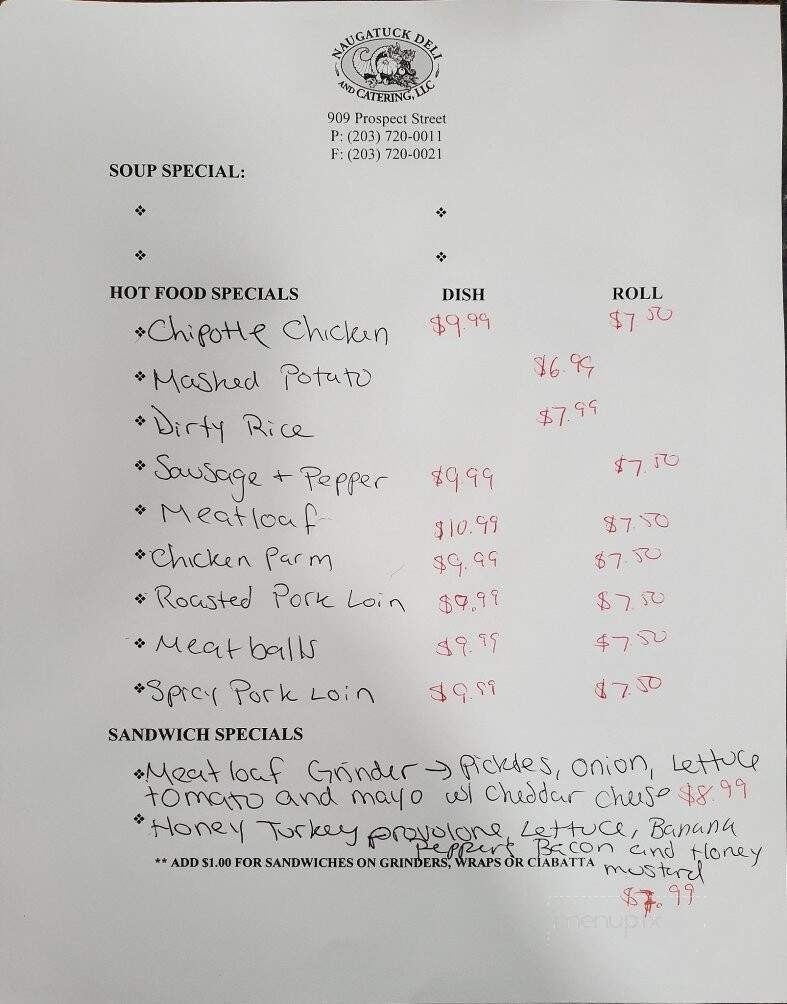 NAUGATUCK DELI
AND CATERING, LLC
909 Prospect Street
P: (203) 720-0011
F: (203) 720-0021
SOUP SPECIAL:
HOT FOOD SPECIALS DISH ROLL
Chipotle Chicken $9.99 $7.50
Mashed Potato $6.99
Dirty Rice $7.99
Sausage + Pepper $9.99 $7.50
Meatloaf $10.99 $7.50
Chicken Parm $9.99 $7.50
Roasted Pork Loin $9.99 $7.50
Meatballs $9.99 $7.50
Spicy Pork Loin $9.99 $7.50
SANDWICH SPECIALS
Meatloaf Grinder → Pickles, onion, Lettuce
tomato and mayo w/ Cheddar Cheese $8.99
Honey Turkey provolone, Lettuce, Banana
peppers Bacon and Honey
** ADD $1.00 FOR SANDWICHES ON GRINDERS, WRAPS OR CIABATTA
mustard
$7.99
menupix